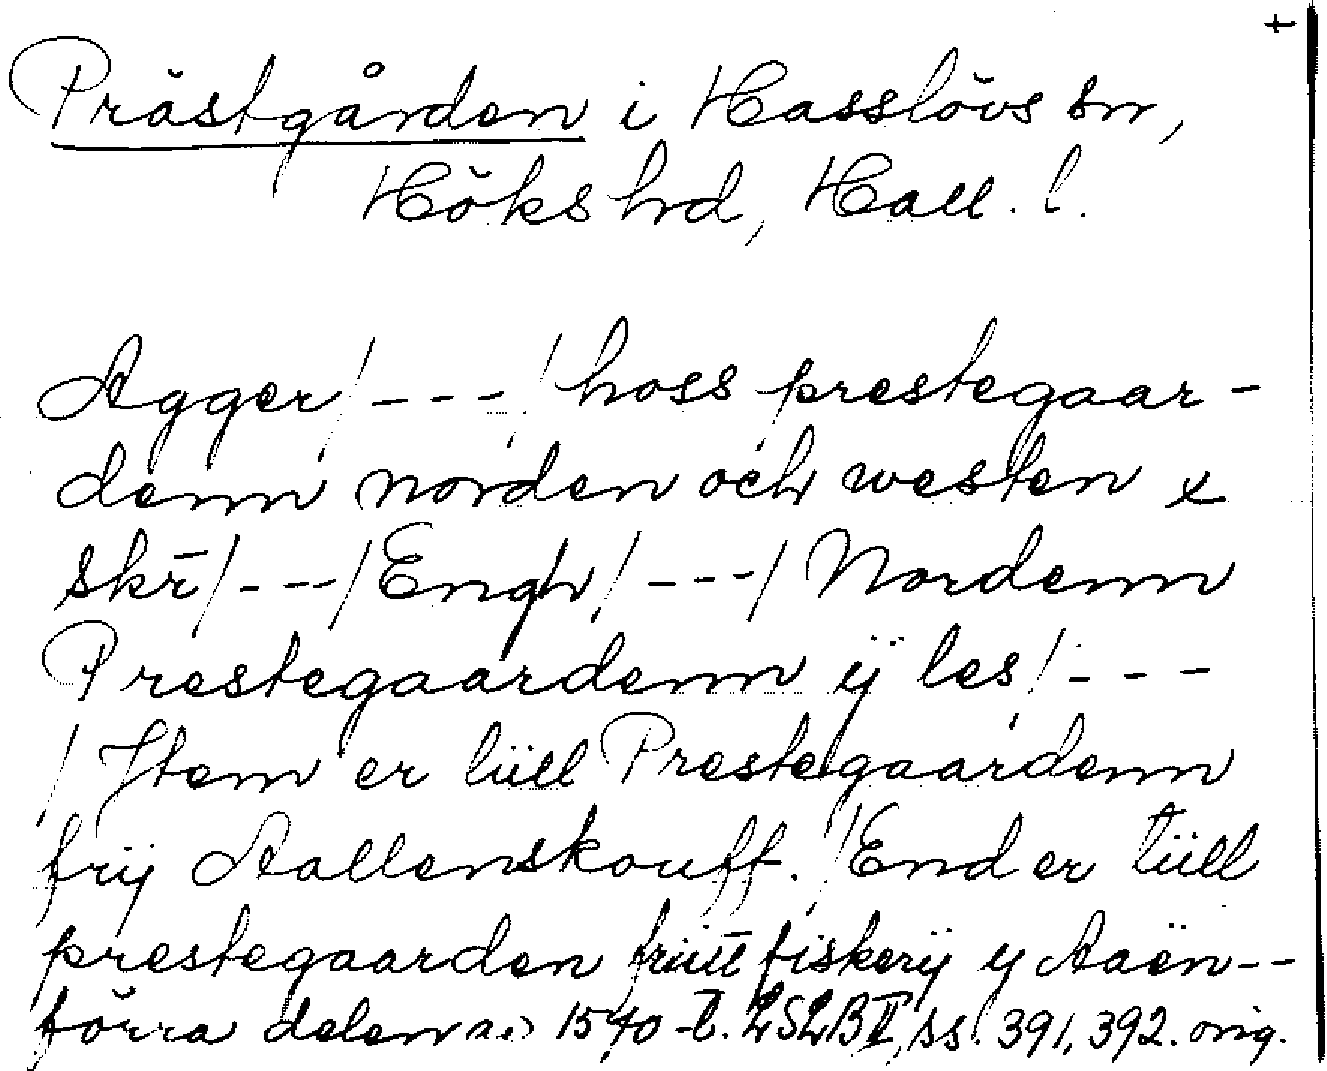 t
Prästgården i Hasslövs sn,
Höks hd, Hall. l.
Agger/---/hoss prestegaar-
denn norden och westen x
skr̄/---/Engh/---/Nordenn
Prestegaardenn ÿ les/---
/Item er tüll Prestegaardenn
frij Aallenskouff./End er tüll
prestegaarden friitt fiskerij y Aaën--
förra delen av 1540-t. LSLB II, ss. 391, 392. orig.